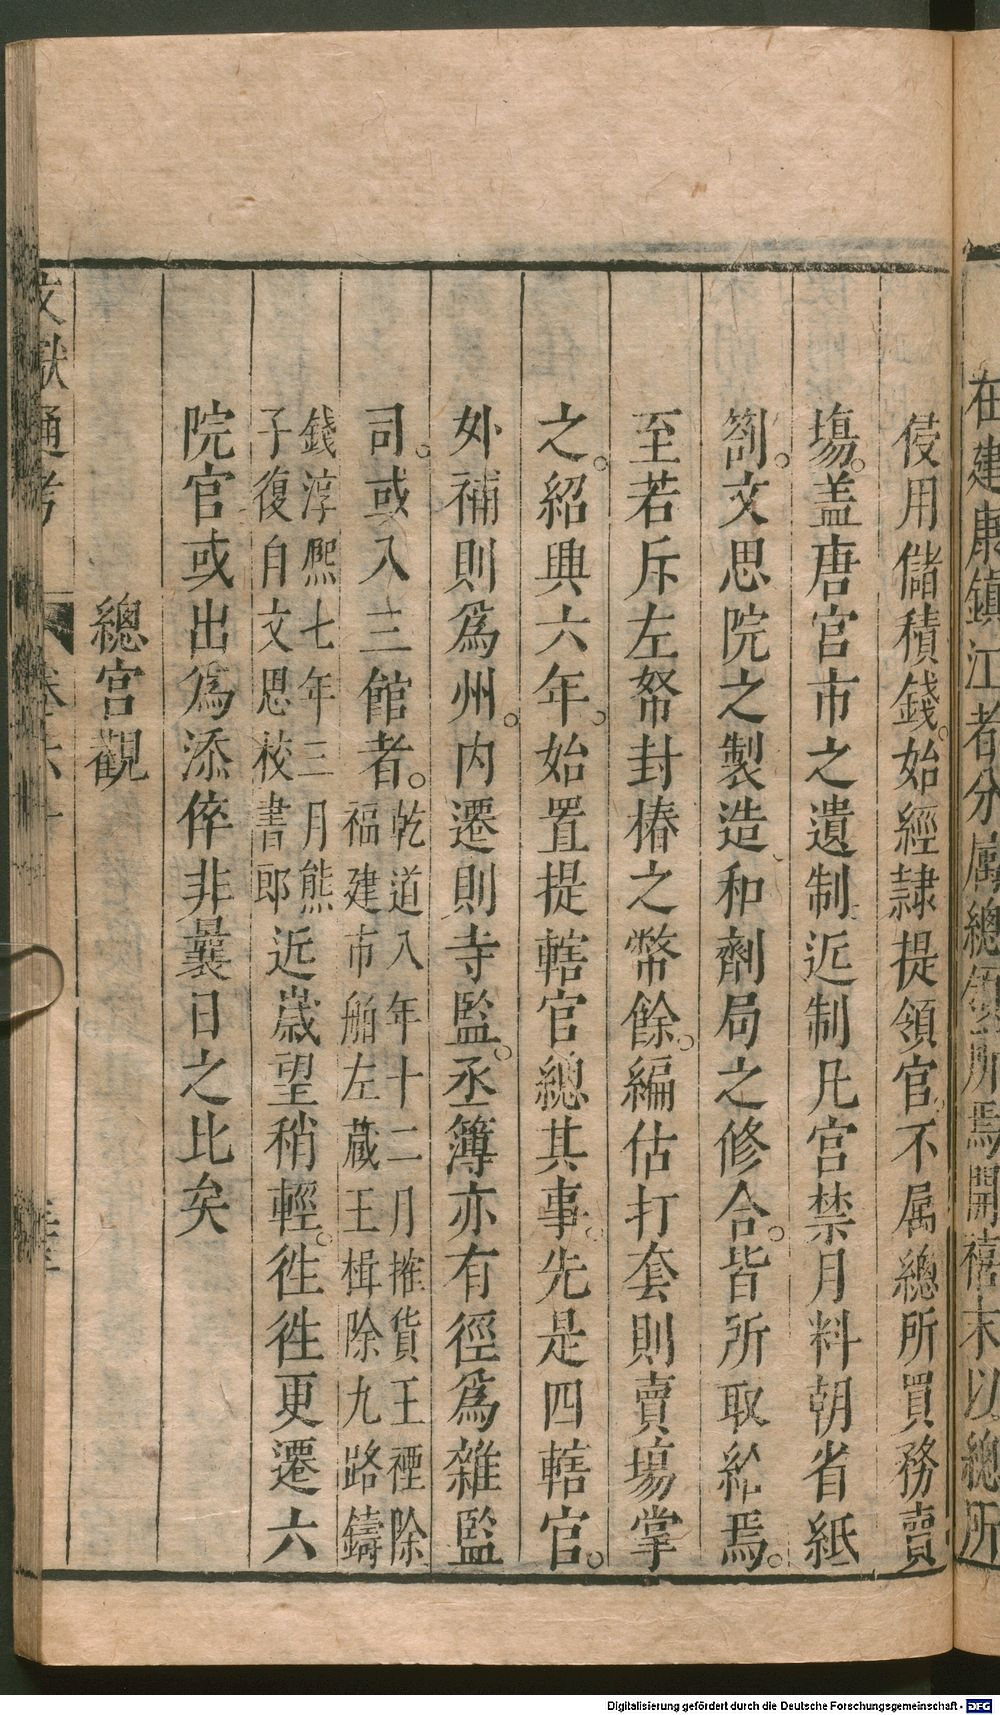 在建康鎮江者分属總領所焉開禧末以總所
侵用儲積錢始經隷提領官不属總所買務賣
塲盖唐官市之遺制近制凡宫禁月料朝省紙
劄文思院之製造和劑局之修合皆所取給焉
至若斥左帑封樁之幣餘編估打套則賣塲掌
之紹興六年始置提轄官總其事先是四轄官
外補則爲州内遷則寺監丞簿亦有徑爲雜監
司或入三館者乾道八年十二月搉貨王禋除
福建市舶左藏王楫除九路鑄
錢淳熙七年三月熊
子復自文思校書郎近歳望稍輕徃徃更遷六
院官或出爲添倅非曩日之比矣
總宫觀
文獻通考 卷六十
Digitalisierung gefördert durch die Deutsche Forschungsgemeinschaft - DFG